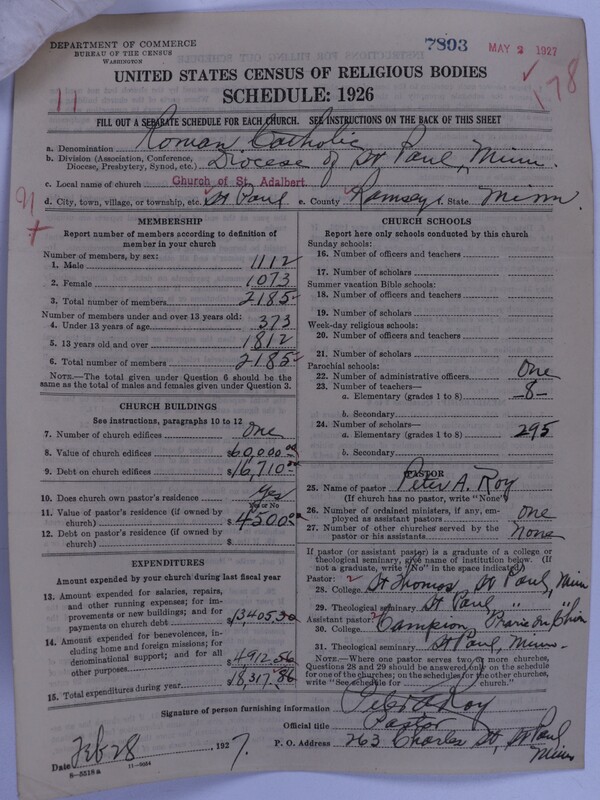 DEPARTMENT OF COMMERCE
BUREAU OF THE CENSUS
WASHINGTON
7803
MAY 2 1927
78
UNITED STATES CENSUS OF RELIGIOUS BODIES
SCHEDULE: 1926
11
FILL OUT A SEPARATE SCHEDULE FOR EACH CHURCH. SEE INSTRUCTIONS ON THE BACK OF THIS SHEET
a. Denomination Roman Catholic
b. Division (Association, Conference, Diocese, Presbytery, Synod, etc.) Diocese of St Paul, Minn.
c. Local name of church Church of St. Adalbert
d. City, town, village, or township, etc. St Paul e. County Ramsey State Minn.
MEMBERSHIP
Report number of members according to definition of member in your church
Number of members, by sex:
1. Male 1112
2. Female 1073
3. Total number of members 2185
Number of members under and over 13 years old:
4. Under 13 years of age 373
5. 13 years old and over 1812
6. Total number of members 2185
NOTE.—The total given under Question 6 should be the same as the total of males and females given under Question 3.
CHURCH BUILDINGS
See instructions, paragraphs 10 to 12
7. Number of church edifices One
8. Value of church edifices $60,000.00
9. Debt on church edifices $16,710.00
10. Does church own pastor's residence Yes
Yes or No
11. Value of pastor's residence (if owned by church) $4500.00
12. Debt on pastor's residence (if owned by church) $
EXPENDITURES
Amount expended by your church during last fiscal year
13. Amount expended for salaries, repairs, and other running expenses; for improvements or new buildings; and for payments on church debt $13405.30
14. Amount expended for benevolences, including home and foreign missions; for denominational support; and for all other purposes $4912.56
15. Total expenditures during year $18,317.86
CHURCH SCHOOLS
Report here only schools conducted by this church
Sunday schools:
16. Number of officers and teachers
17. Number of scholars
Summer vacation Bible schools:
18. Number of officers and teachers
19. Number of scholars
Week-day religious schools:
20. Number of officers and teachers
21. Number of scholars
Parochial schools:
22. Number of administrative officers One
23. Number of teachers—
a. Elementary (grades 1 to 8) -8-
b. Secondary
24. Number of scholars—
a. Elementary (grades 1 to 8) 295
b. Secondary
PASTOR
25. Name of pastor Peter A. Roy
(If church has no pastor, write "None")
26. Number of ordained ministers, if any, employed as assistant pastors One
27. Number of other churches served by the pastor or his assistants None
If pastor (or assistant pastor) is a graduate of a college or theological seminary, give name of institution below. (If not a graduate, write "No" in the space indicated)
Pastor:
28. College St Thomas, St Paul, Minn
29. Theological seminary St Paul " "
Assistant pastor:
30. College Campion, Prairie du Chien
31. Theological seminary St Paul, Minn.
NOTE.—Where one pastor serves two or more churches, Questions 28 and 29 should be answered only on the schedule for one of the churches; on the schedules for the other churches, write "See schedule for church."
Signature of person furnishing information Peter A Roy
Official title Pastor
Date Feb 28, 1927. P. O. Address 263 Charles St, St Paul Minn
8—5518a 11—9054